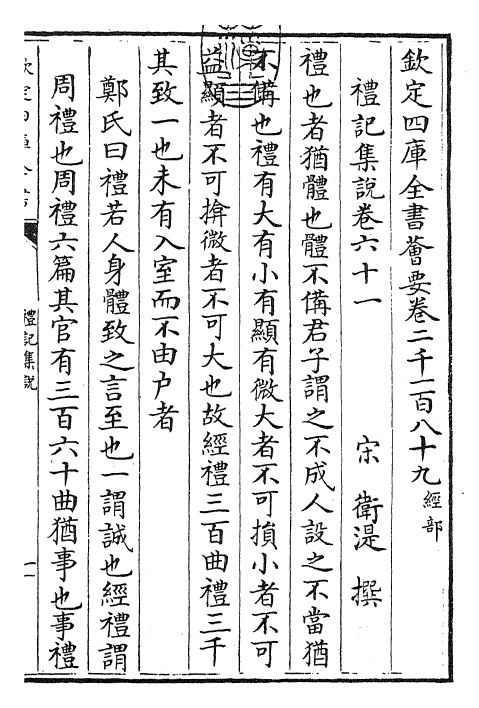 欽定四庫全書薈要卷二千一百八十九經部
禮記集說卷六十一
宋　衛湜　撰
禮也者猶體也體不備君子謂之不成人設之不當猶
不備也禮有大有小有顯有微大者不可損小者不可
益顯者不可揜微者不可大也故經禮三百曲禮三千
其致一也未有入室而不由户者
鄭氏曰禮若人身體致之言至也一謂誠也經禮謂
周禮也周禮六篇其官有三百六十曲猶事也事禮
欽定四庫全書
禮記集說
一